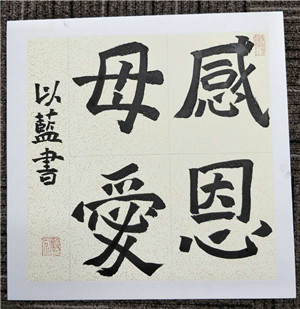 感恩
母愛
以藍書